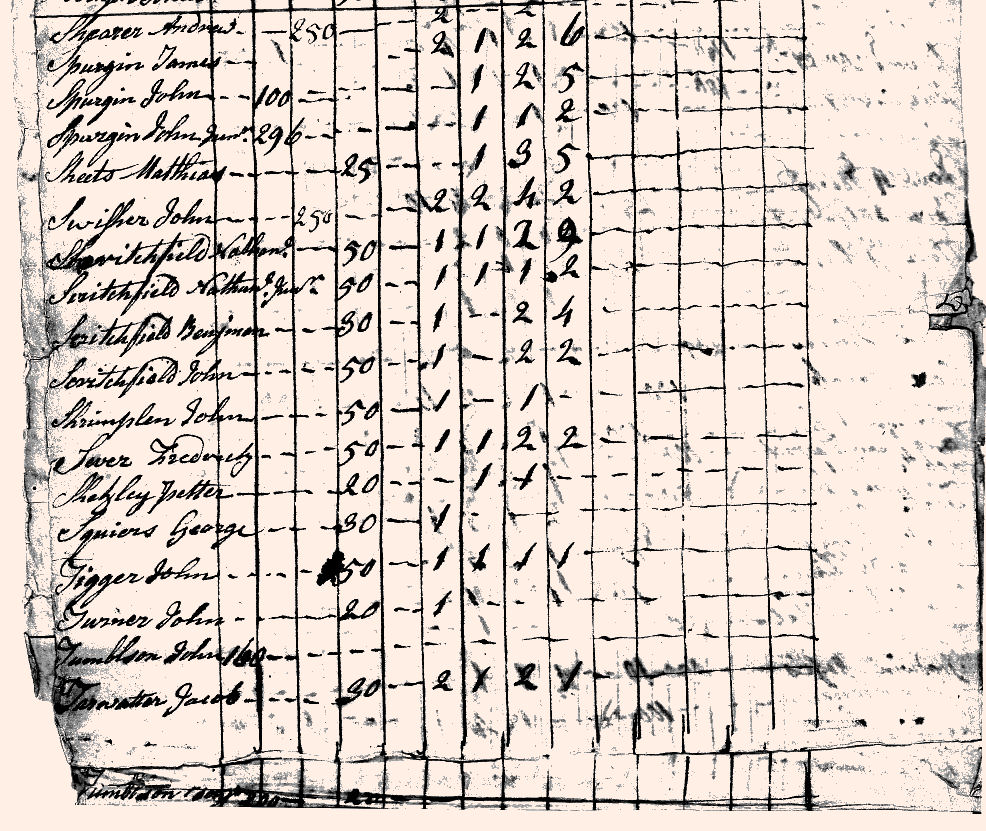 Shearer Andrew 250 2 1 2 6
Spurgin James
Spurgin John 100 1 2 5
Spurgin John Junr. 296 1 1 2
Sheets Matthias 25 1 3 5
Swisher John 250 2 2 4 2
Scritchfield Nathanl. 50 1 1 2
Scritchfield Nathanl. Junr 50 1 1 1 2
Scritchfield Benjman 30 1 2 4
Scritchfield John 50 1 2 2
Shrimplen John 50 1 1
Sever Frederick 50 1 1 2 2
Shakley petter 20 1 1
Squiers George 30 1
Tigger John 50 1 1 1 1
Turner John 20 1
Tumblson John 160
Tarwatter Jacob 30 2 1 2 1
Tumblson